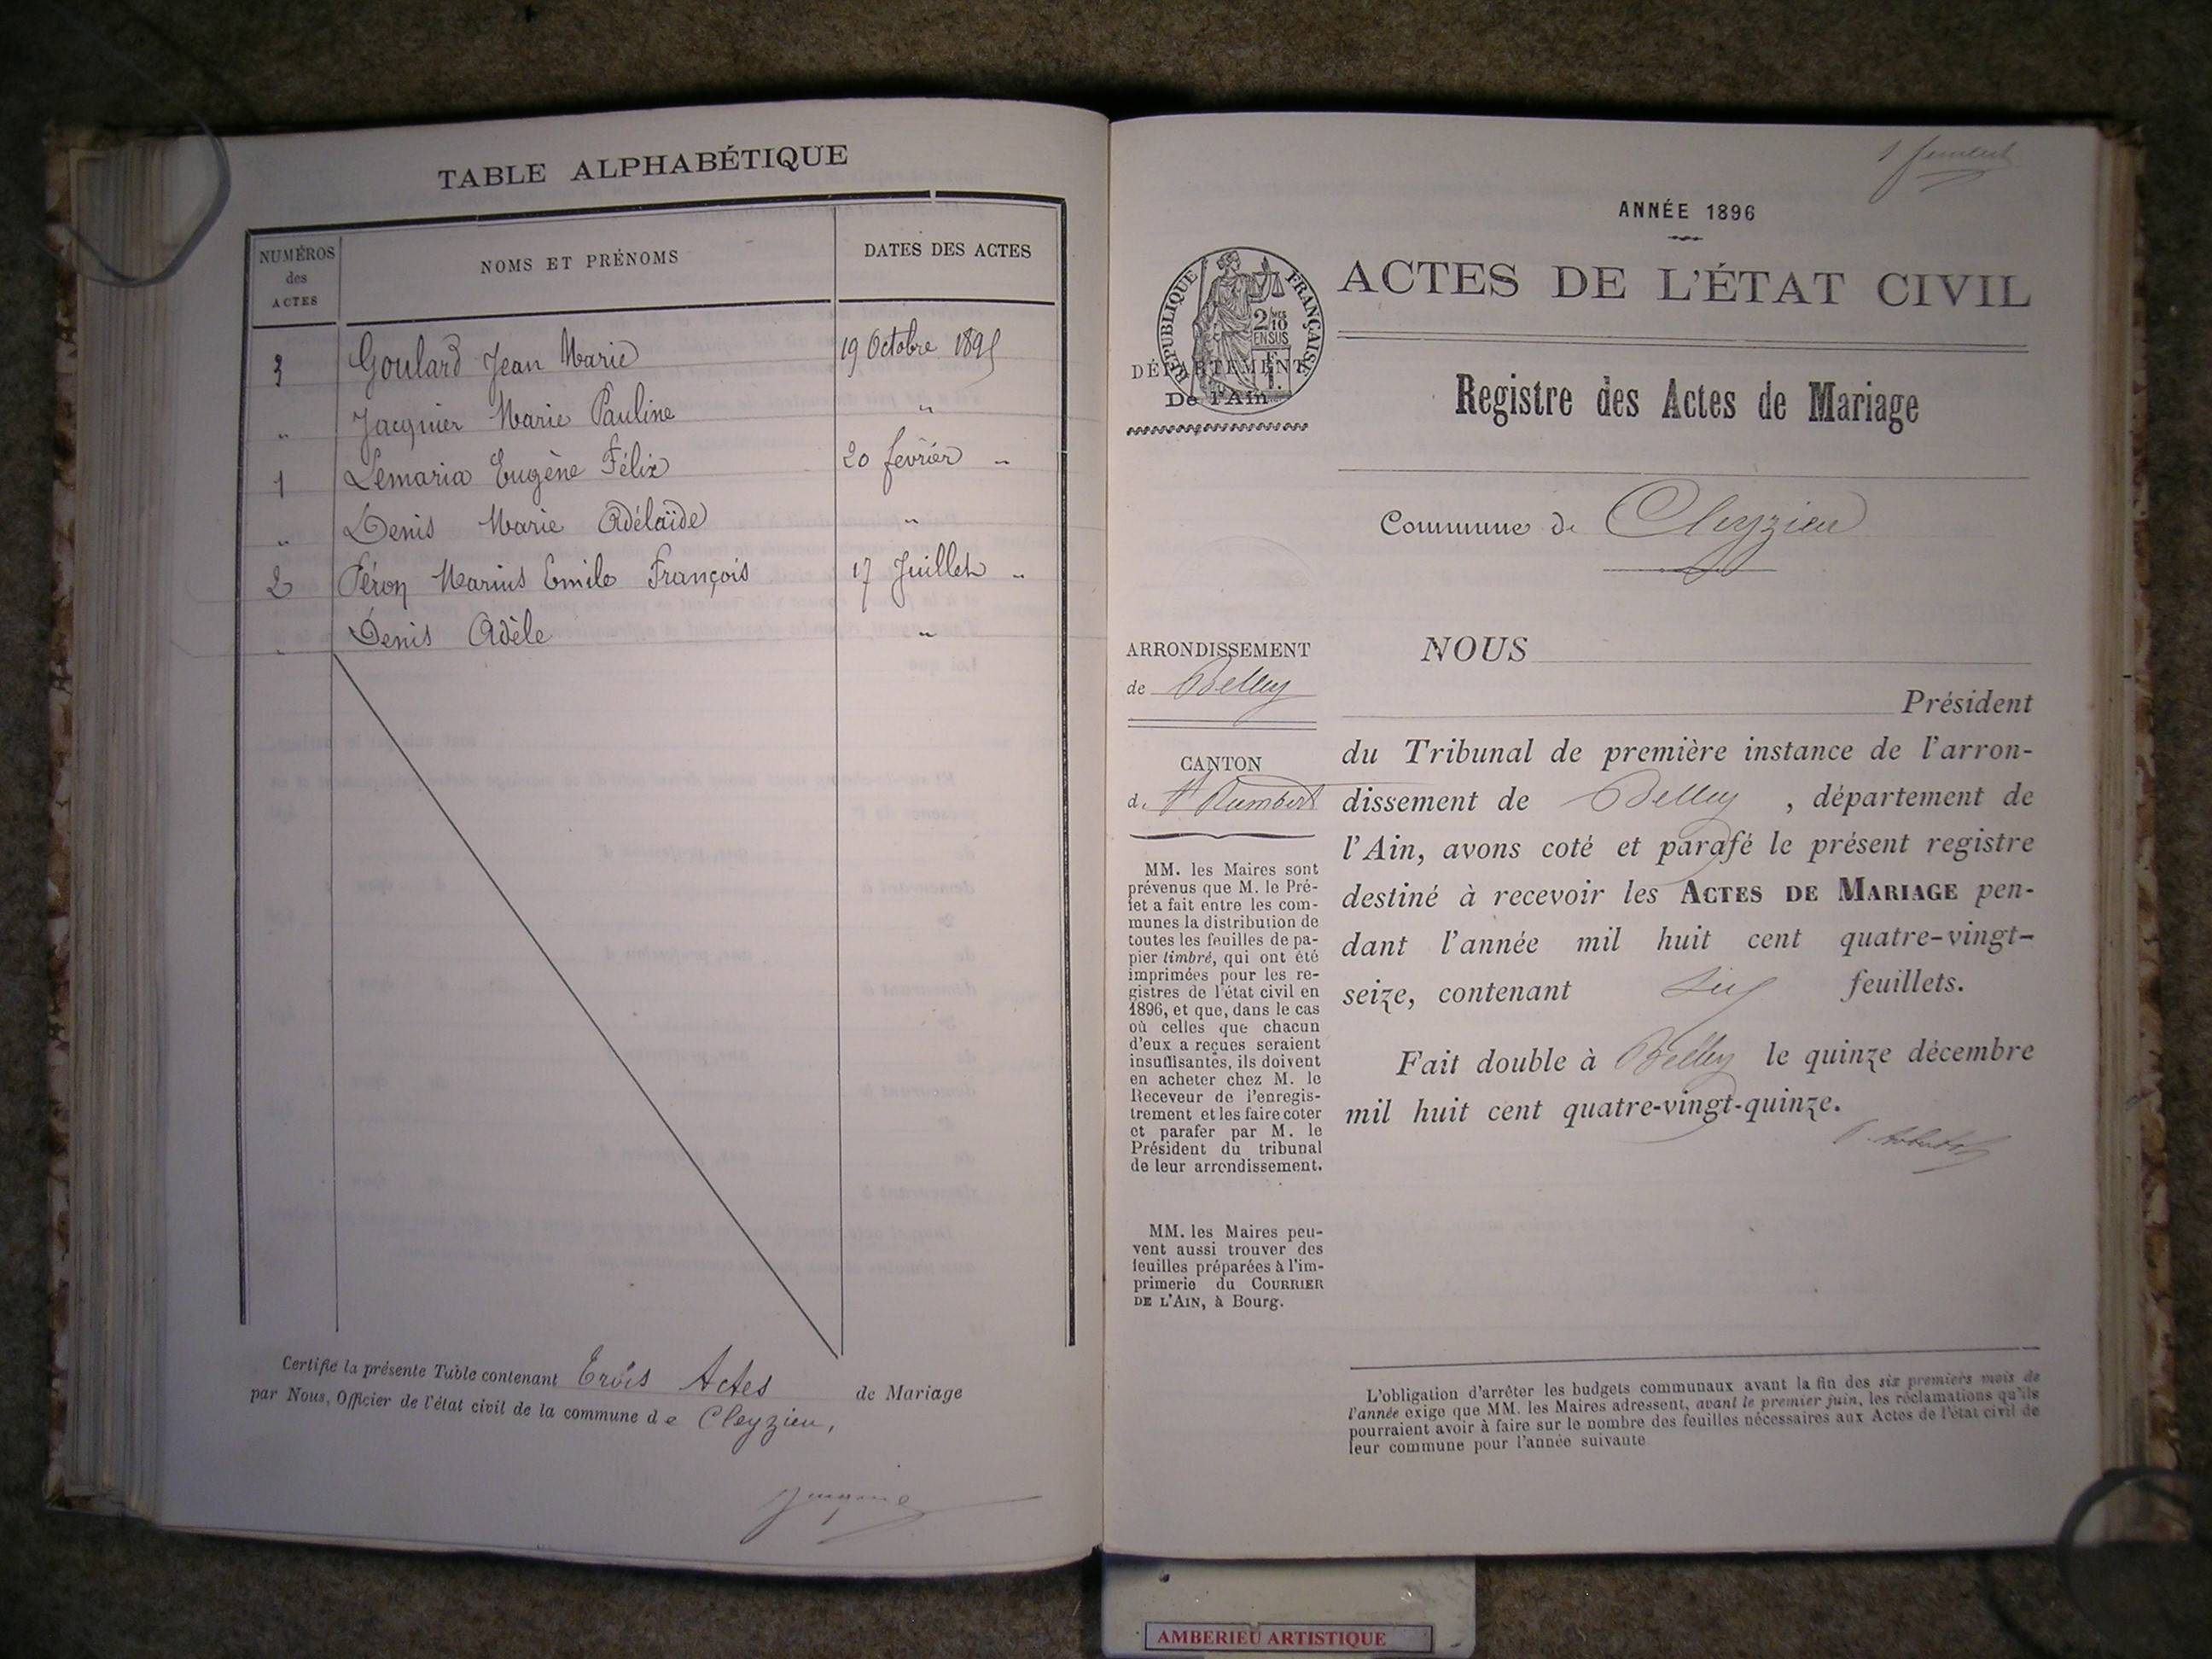 TABLE ALPHABÉTIQUE
NUMÉROS des ACTES
NOMS ET PRÉNOMS
DATES DES ACTES
3 Goulard Jean Marie 19 Octobre 1895
" Jacquier Marie Pauline "
1 Lemaria Eugène Félix 20 février "
" Denis Marie Adélaïde "
2 Péron Marius Emile François 17 Juillet "
" Denis Adèle "
Certifie la présente Table contenant Trois Actes de Mariage
par Nous, Officier de l'état civil de la commune de Cleyzieu,
ANNÉE 1896
RÉPUBLIQUE FRANÇAISE
2/10 EN SUS
ACTES DE L'ÉTAT CIVIL
DÉPARTEMENT
De l'Ain
Registre des Actes de Mariage
Commune de Cleyzieu
ARRONDISSEMENT
de Belley
CANTON
de St Rambert
MM. les Maires sont
prévenus que M. le Pré-
fet a fait entre les com-
munes la distribution de
toutes les feuilles de pa-
pier timbré, qui ont été
imprimées pour les re-
gistres de l'état civil en
1896, et que, dans le cas
où celles que chacun
d'eux a reçues seraient
insuffisantes, ils doivent
en acheter chez M. le
Receveur de l'enregis-
trement et les faire coter
et parafer par M. le
Président du tribunal
de leur arrondissement.
MM. les Maires peu-
vent aussi trouver des
feuilles préparées à l'im-
primerie du COURRIER
DE L'AIN, à Bourg.
NOUS
Président
du Tribunal de première instance de l'arron-
dissement de Belley, département de
l'Ain, avons coté et parafé le présent registre
destiné à recevoir les ACTES DE MARIAGE pen-
dant l'année mil huit cent quatre-vingt-
seize, contenant six feuillets.
Fait double à Belley le quinze décembre
mil huit cent quatre-vingt-quinze.
L'obligation d'arrêter les budgets communaux avant la fin des six premiers mois de
l'année exige que MM. les Maires adressent, avant le premier juin, les réclamations qu'ils
pourraient avoir à faire sur le nombre des feuilles nécessaires aux Actes de l'état civil de
leur commune pour l'année suivante
AMBERIEU ARTISTIQUE